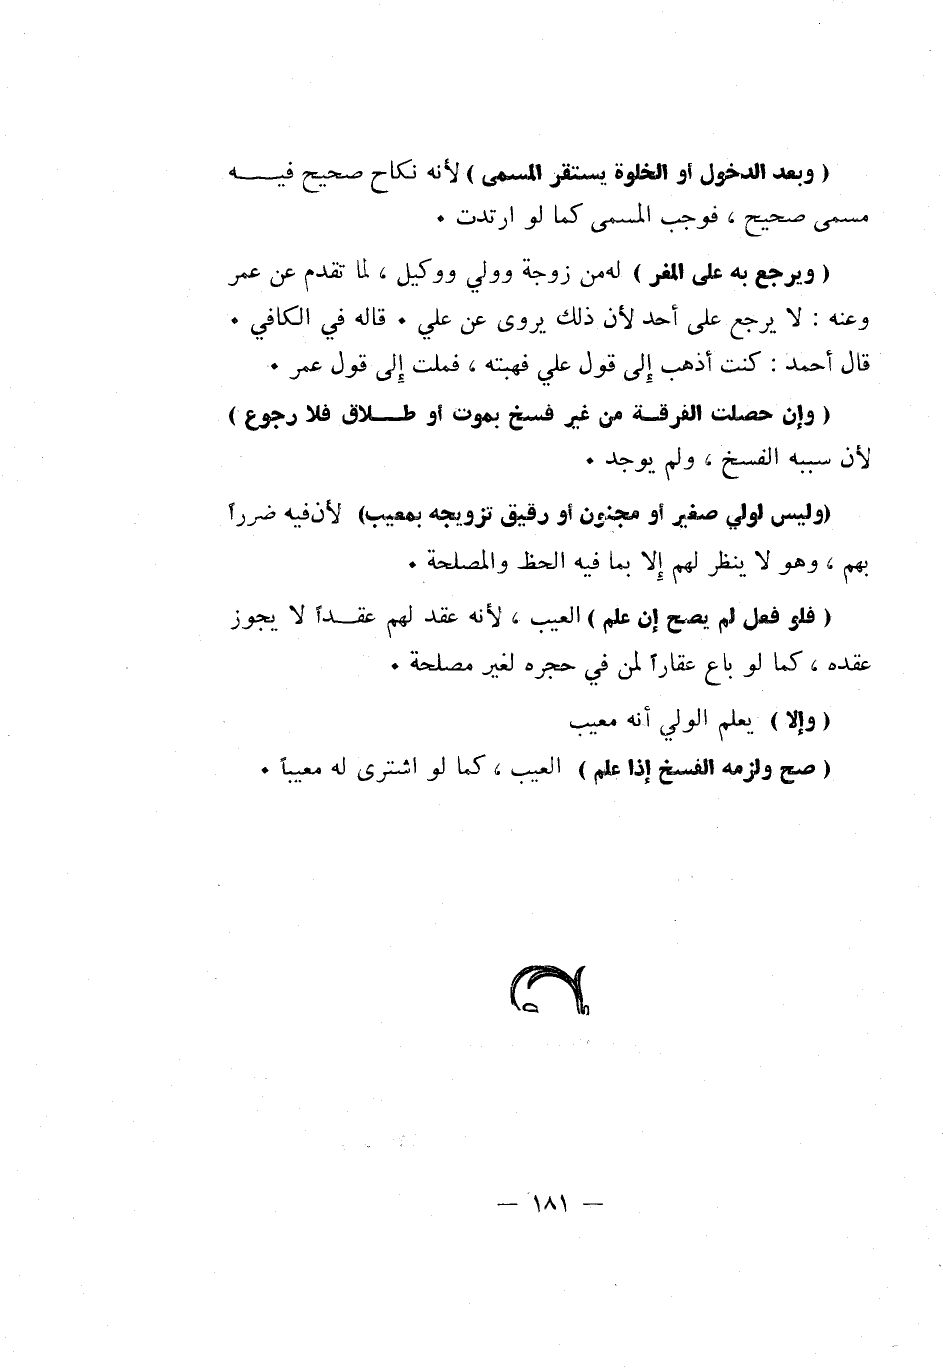 ( وبعد الدخول أو الخلوة يستقر المسمى ) لأنه نكاح صحيح فيـــه
مسمى صحيح ، فوجب المسمى كما لو ارتدت .
( ويرجع به على المغر ) له من زوجة وولي ووكيل ، لما تقدم عن عمر
وعنه : لا يرجع على أحد لأن ذلك يروى عن علي . قاله في الكافي .
قال أحمد : كنت أذهب إلى قول علي فهبته ، فملت إلى قول عمر .
( وإن حصلت الفرقــة من غير فسخ بموت أو طـــلاق فلا رجوع )
لأن سببه الفسخ ، ولم يوجد .
(وليس لولي صغير أو مجنون أو رقيق تزويجه بمعيب) لأن فيه ضرراً
بهم ، وهو لا ينظر لهم إلا بما فيه الحظ والمصلحة .
( فلو فعل لم يصح إن علم ) العيب ، لأنه عقد لهم عقــداً لا يجوز
عقده ، كما لو باع عقاراً لمن في حجره لغير مصلحة .
( وإلا ) يعلم الولي أنه معيب
( صح ولزمه الفسخ إذا علم ) العيب ، كما لو اشترى له معيباً .
— ١٨١ —